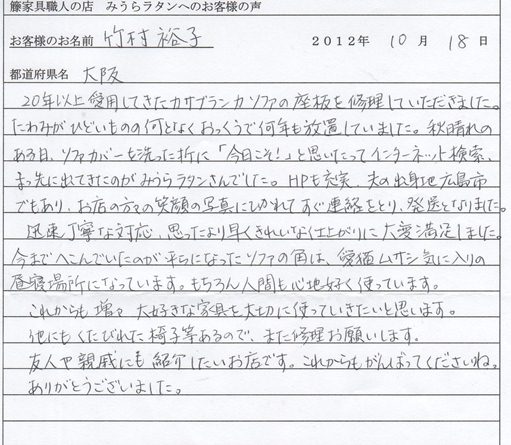 籐家具職人の店　みうらラタンへのお客様の声
お客様のお名前　竹村　裕子　２０１２年　10　月　18　日
都道府県名　大阪
20年以上愛用してきたカサブランカソファの座板を修理していただきました。
たわみがひどいものの何となくおっくうで何年も放置していました。秋晴れの
ある日、ソファカバーを洗った折に「今日こそ！」と思いたってインターネット検索、
まっ先に出てきたのがみうらラタンさんでした。HPも充実、夫の出身地広島市
でもあり、お店の方々の笑顔の写真にひかれてすぐ連絡をとり、発送となりました。
迅速丁寧な対応、思ったより早くきれいな仕上がりに大変満足しました。
今までへこんでいたのが平らになったソファの角は、愛猫ムサシ気に入りの
昼寝場所になっています。もちろん人間も心地好く使っています。
これからも増々大好きな家具を大切に使っていきたいと思います。
他にもくたびれた椅子等あるので、また修理お願いします。
友人や親戚にも紹介したいお店です。これからもがんばってくださいね。
ありがとうございました。